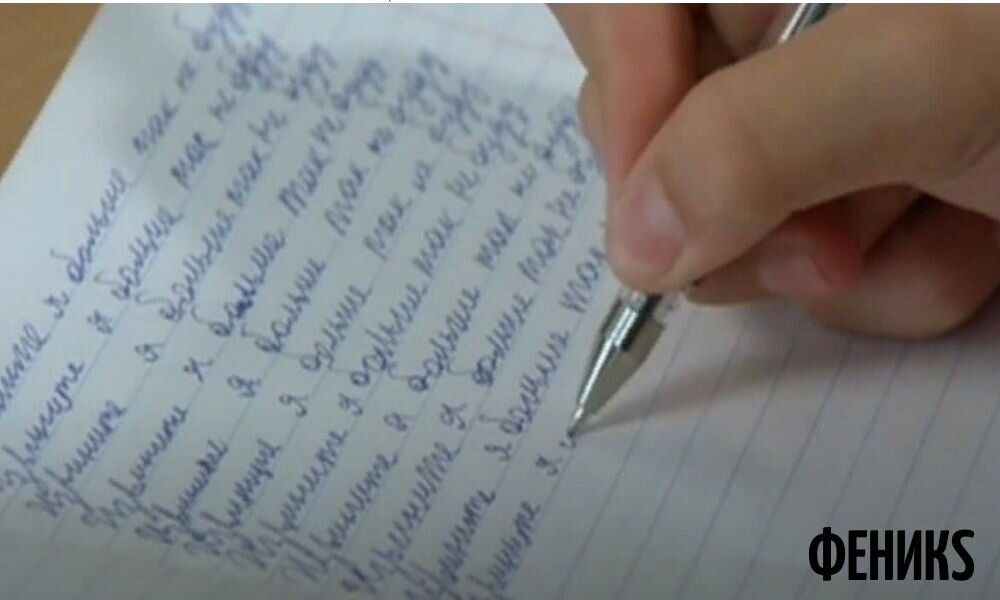 ините я больше так не буду
Извините я больше так не буду
Извините я больше так не буду
Извините я больше так не буду
Извините я больше так не буду
Извините я больше так не буду
Извините я больше так не буду
Извините я больше так не буду
Извините я больше так не
Извините я больше так
звините я
ФЕНИКS